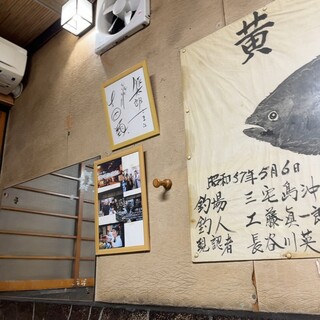 黄
昭和57年5月6日
釣場 三宅島沖
釣人 工藤眞一郎
現認者 長谷川英